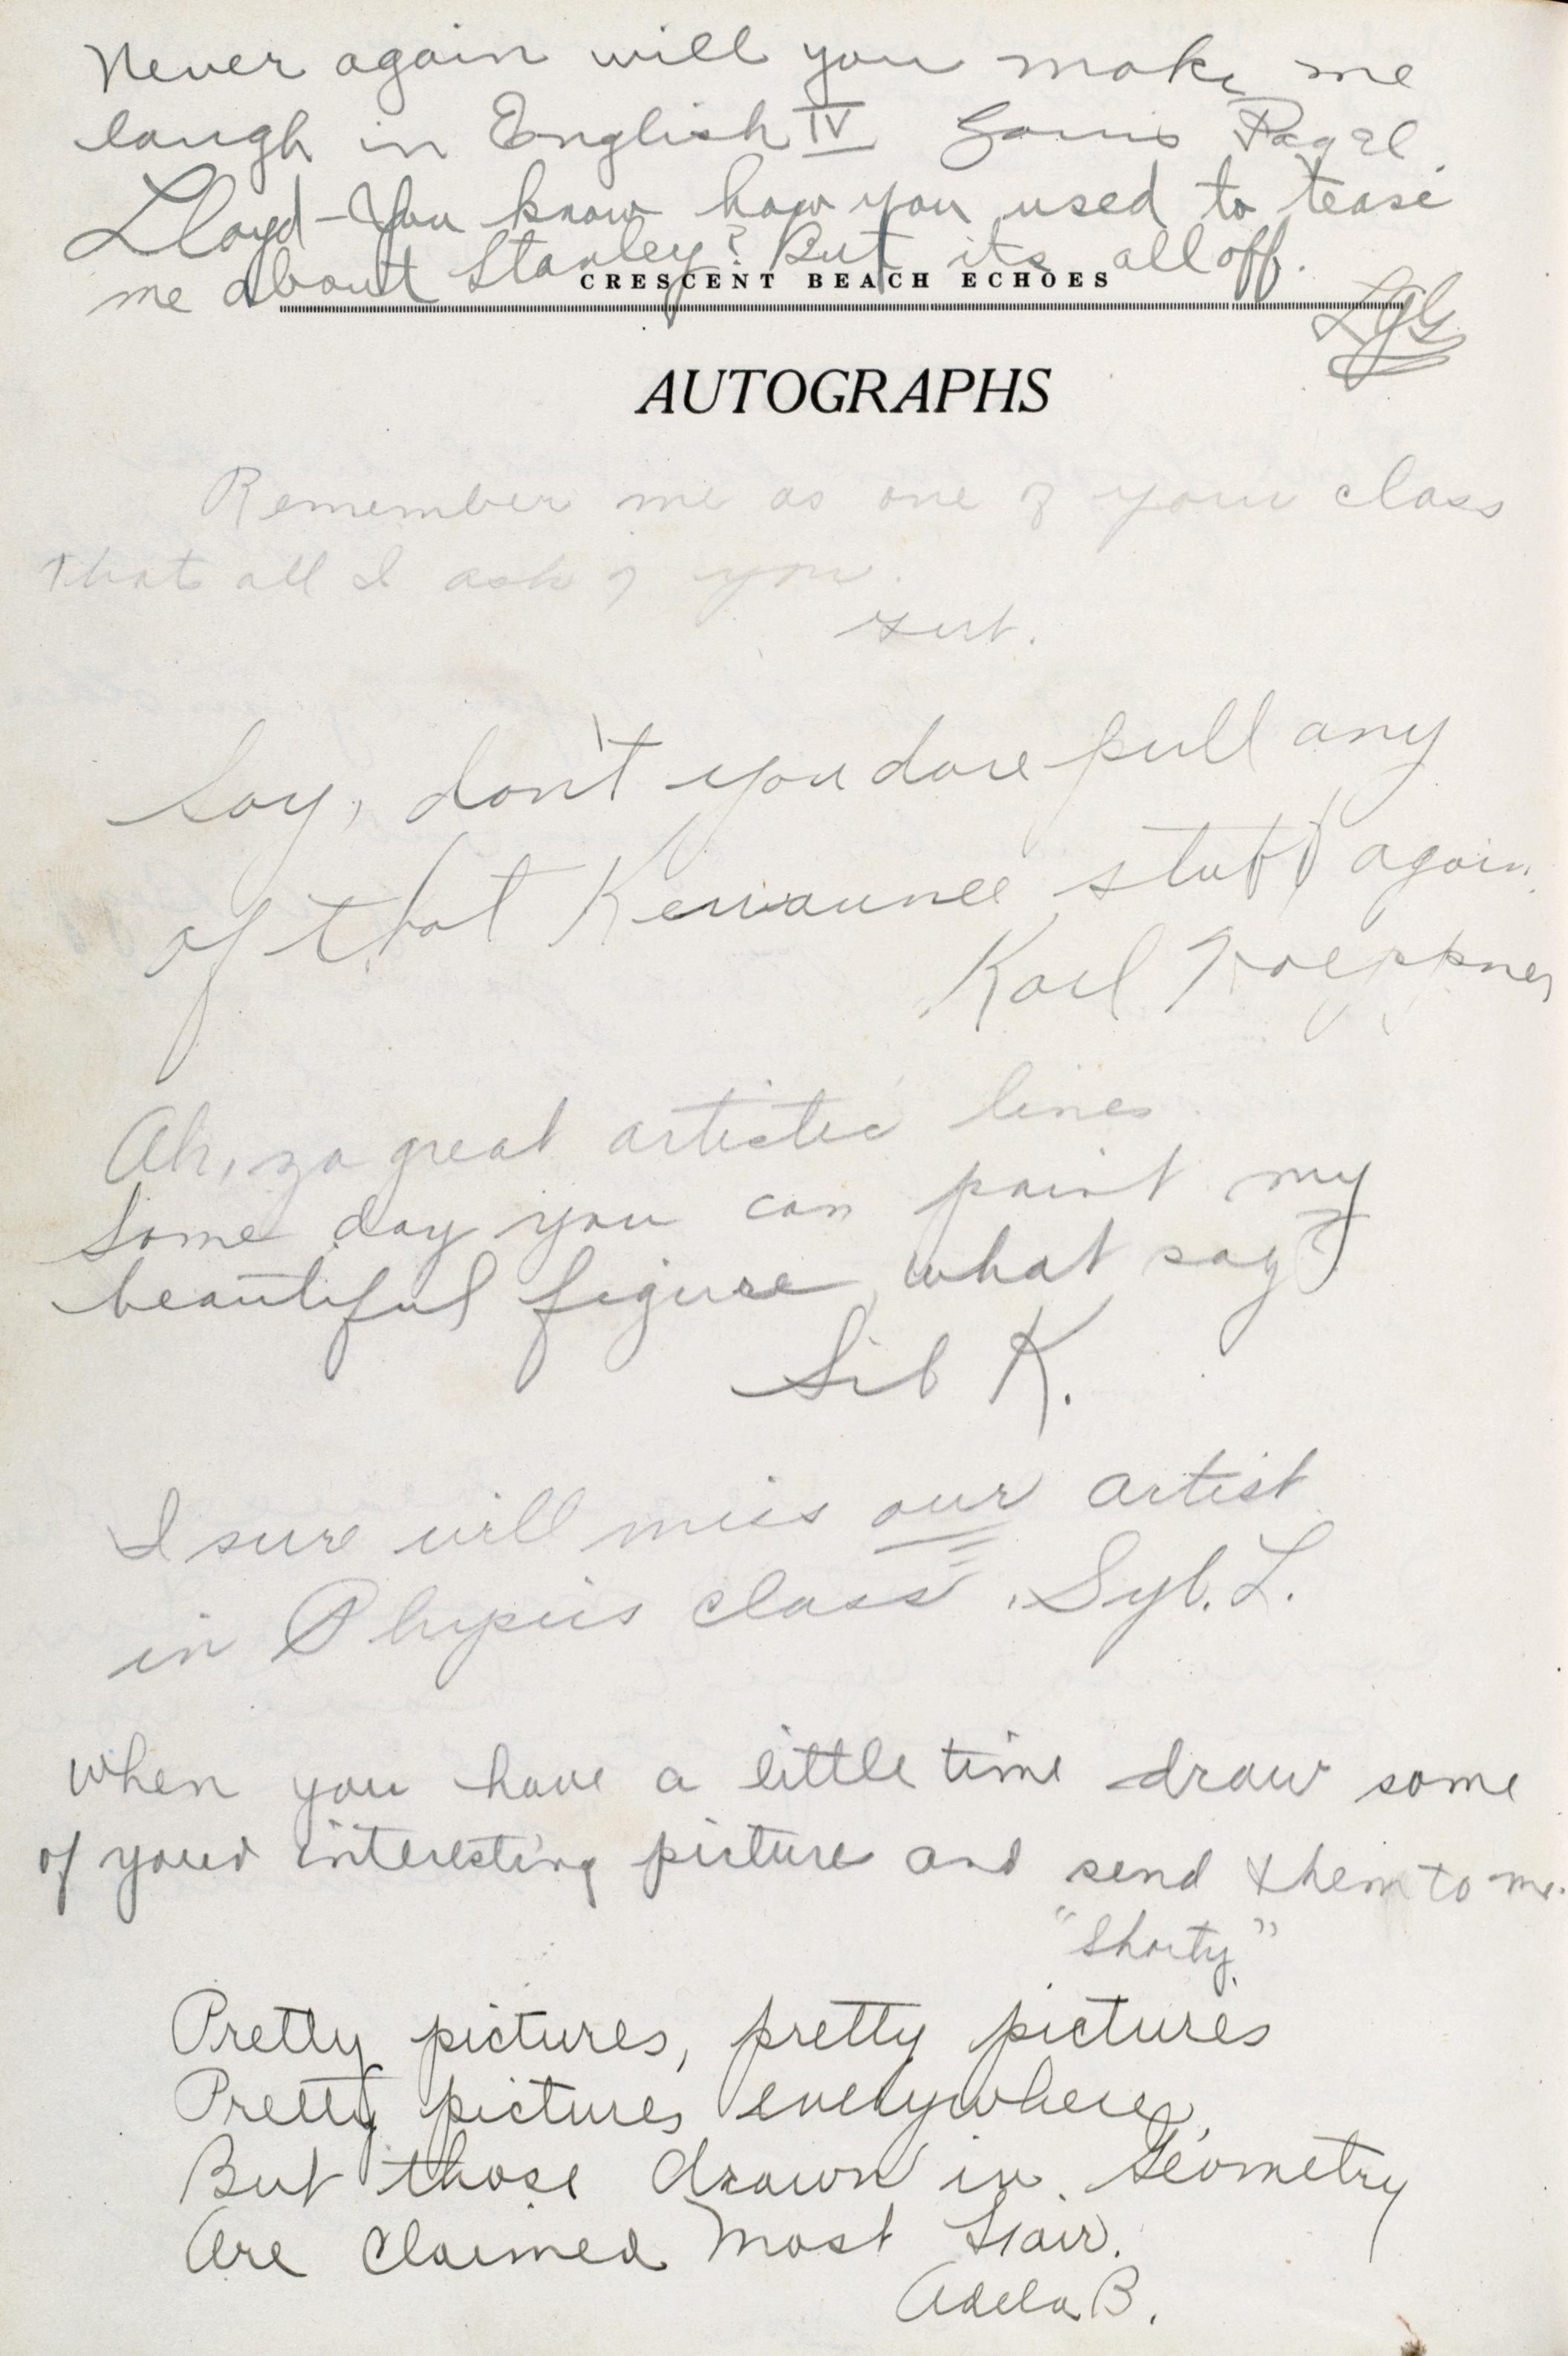 Never again will you make me
laugh in English IV Louis Pagel.
Lloyd - You know how you used to tease
me about Stanley? But its all off.
LGG
CRESCENT BEACH ECHOES
AUTOGRAPHS
Remember me as one of your class
thats all I ask of you.
Gert.
Say, don't you dare pull any
of that Kewaunee stuff again.
Karl
Ah, ze great artistic lines
Some day you can paint my
beautiful figure, what say?
Sib K.
I sure will miss our artist
in Physics class. Syb. L.
When you have a little time draw some
of your interesting picture and send them to me.
"Shorty"
Pretty pictures, pretty pictures
Pretty pictures everywhere,
But those drawn in Geometry
Are claimed most fair.
Adela B.